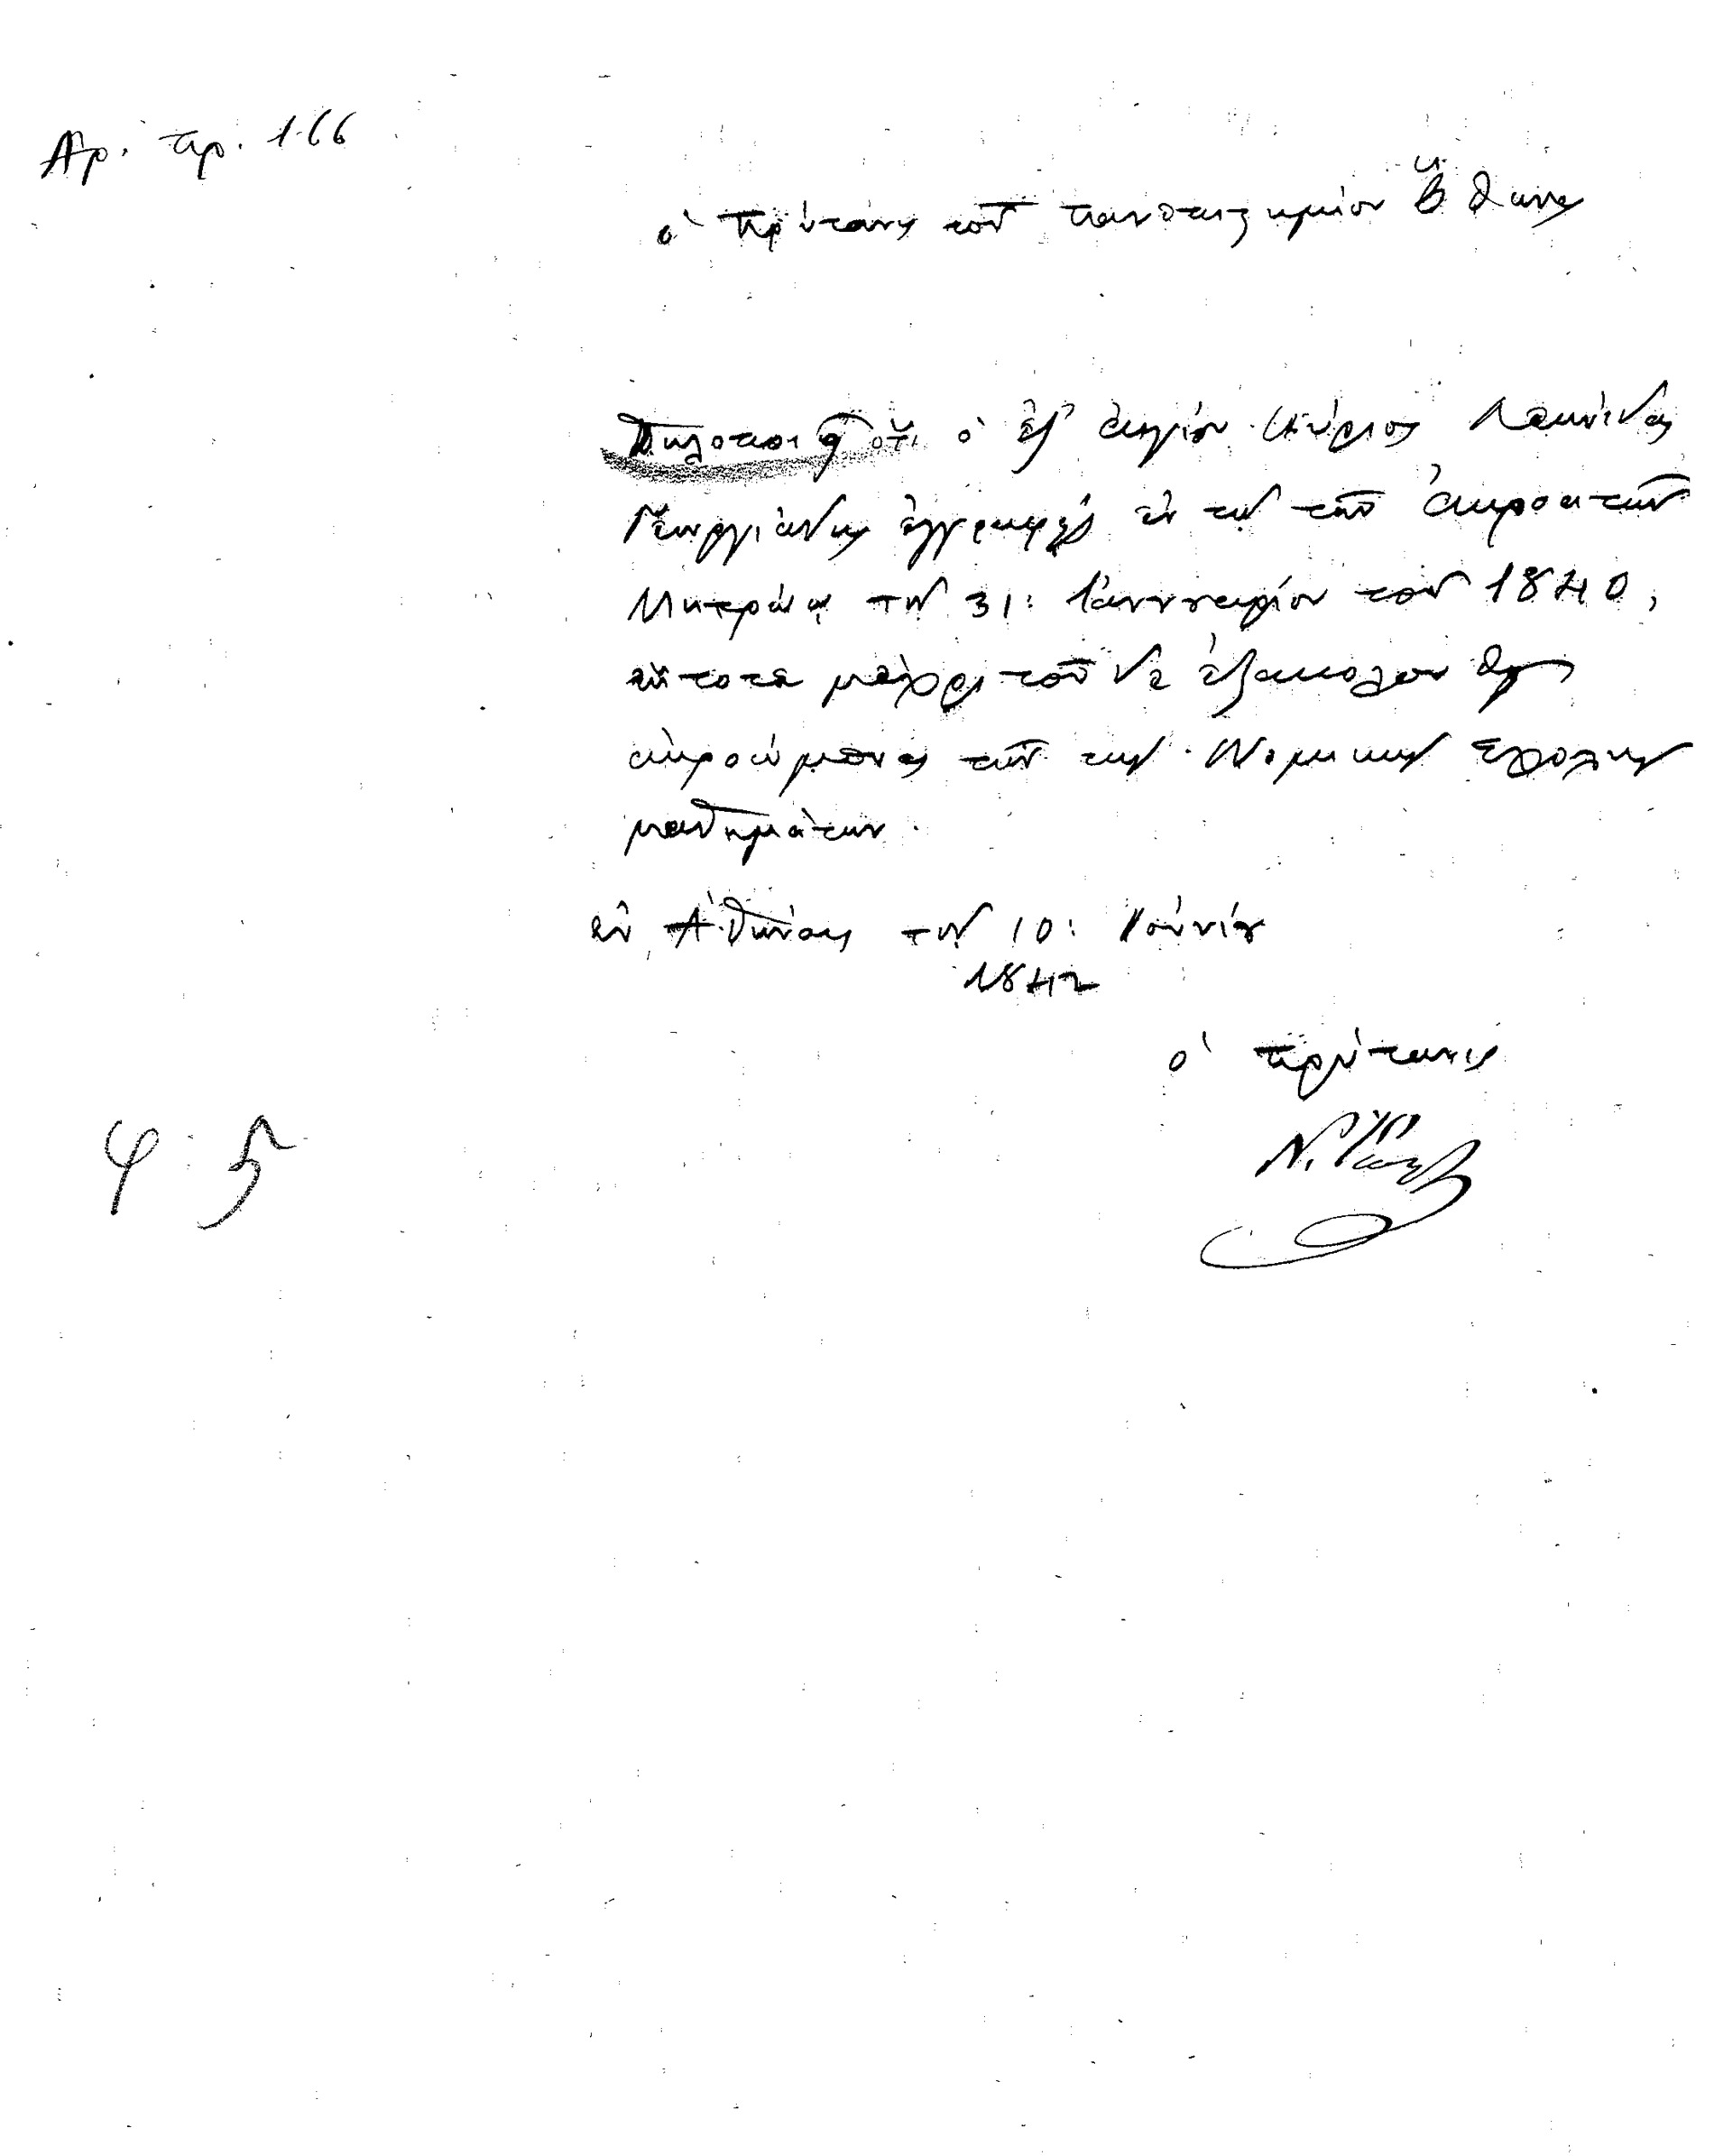 Αρ. πρ. 166
ὁ Πρύτανις τοῦ πανεπιστημίου Ὄθωνος
Δηλοποιεῖ ὅτι ὁ ἐξ Αἰγίου Κύριος Λεωνίδας
Γεωργιάδης ἐγγραφεὶς ἐν τῷ τῶν ἀκροατῶν
Μητρώῳ τὴν 31: Ἰανουαρίου τοῦ 1840,
ἔκτοτε μέχρι τοῦ νῦν ἐξακολουθεῖ
ἀκροώμενος τῶν τῆς Νομικῆς Σχολῆς
μαθημάτων.
ἐν Ἀθήναις τὴν 10: Ἰουνίου
1842
ὁ πρύτανις
Ν.
φ: 5